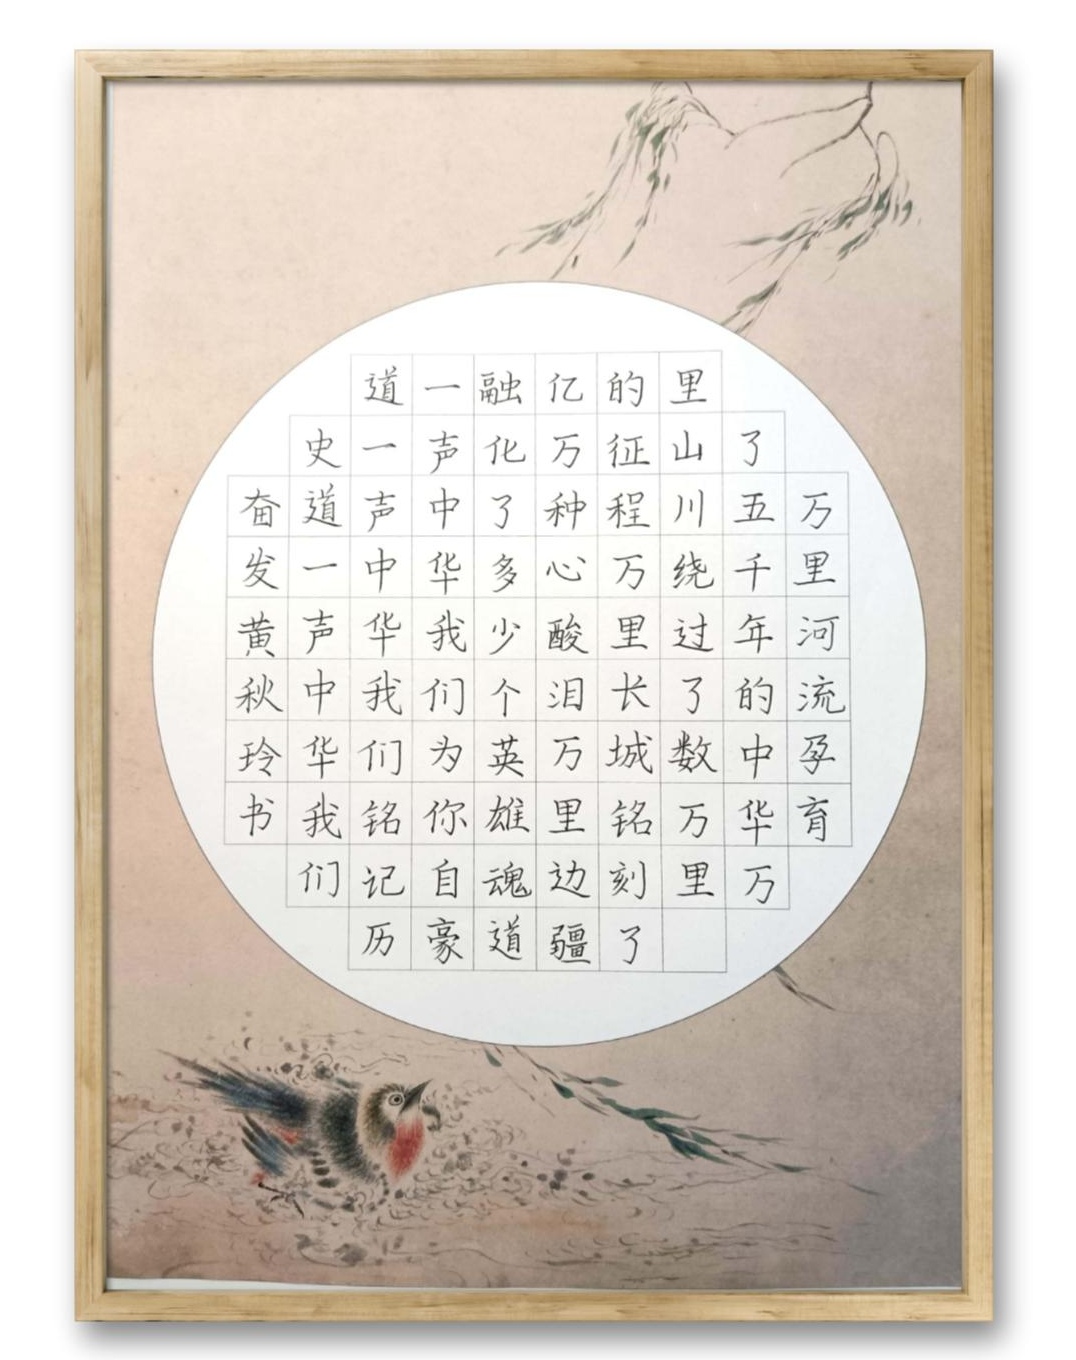 万里河流孕育
了五千年的中华万
里山川绕过了数万里
的征程万里长城铭刻了
亿万种心酸泪万里边疆
融化了多少个英雄魂道
一声中华我们为你自豪
道一声中华我们铭记历
史道一声中华我们
奋发黄秋玲书